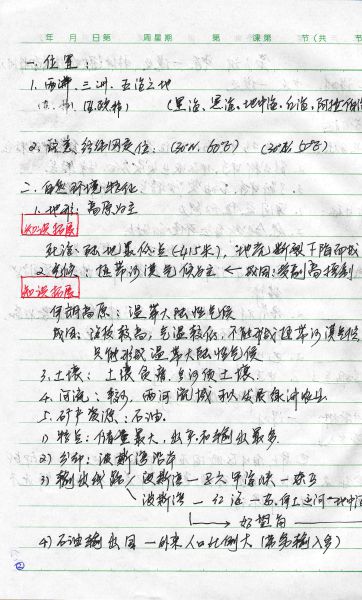 年 月 日第 周星期 第 课第 节(共 节
一、位置:
1. 两洋、三洲、五海之地
(黑海、里海、地中海、红海、阿拉伯海
2. 经纬网定位: (30°N, 60°E) (30°N, 50°E)
二、自然环境特征
1. 地形: 高原为主
知识拓展
死海: 陆地最低点 (-415米), 地壳断裂下陷而成
2. 气候: 热带沙漠气候为主 ← 成因: 受副高控制
知识拓展
伊朗高原: 温带大陆性气候
成因: 海拔较高, 气温较低, 不能形成热带沙漠气候,
只能形成温带大陆性气候
3. 土壤: 土壤贫瘠, 多沙质土壤.
4. 河流: 较少, 两河流域可以发展绿洲农业
5. 矿产资源: 石油.
1) 特点: 储量最大, 出产和输出最多
2) 分布: 波斯湾沿岸
3) 输出线路 波斯湾 — 霍尔木兹海峡
波斯湾 — 红海 — 苏伊士运河 — 地中海
好望角
4) 石油输出国 — 外来人口比例大